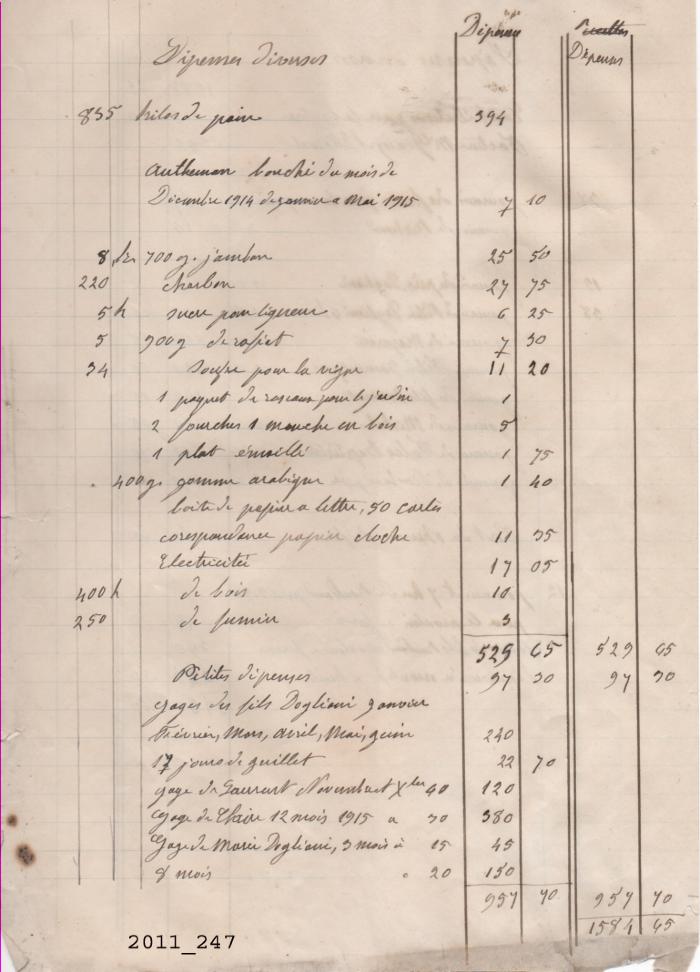 Dépense Recettes
Dépenses diverses Dépenses
835 kilos de pain 394
Autheman bouché du mois de
Décembre 1914 de janvier a Mai 1915 7 10
8 700 g. jambon 25 50
220 charbon 27 75
5 k sucre pour liqueur 6 25
5 900 g de rafiet 7 30
34 Soufre pour la vigne 11 20
1 paquet de roseaux pour le jardin 1
2 fourches 1 manche en bois 5
1 plat émaillé 1 75
400 gr gomme arabique 1 40
boite de papier a lettre, 50 cartes
corespondance papier cloche 11 35
Electricité 17 05
400 k de bois 10
250 de fumier 3
529 65 529 65
Petites dépenses 97 30 97 30
gages des fils Doglioni janvier
Février, Mars, avril, Mai, juin 240
17 jours de juillet 22 70
gage de Laurent Novembre et Xbre 40 120
gage de Claire 12 mois 1915 a 30 380
Gage de Marie Doglioni, 3 mois à 15 45
8 mois " 20 150
957 70 957 70
1584 65
2011_247